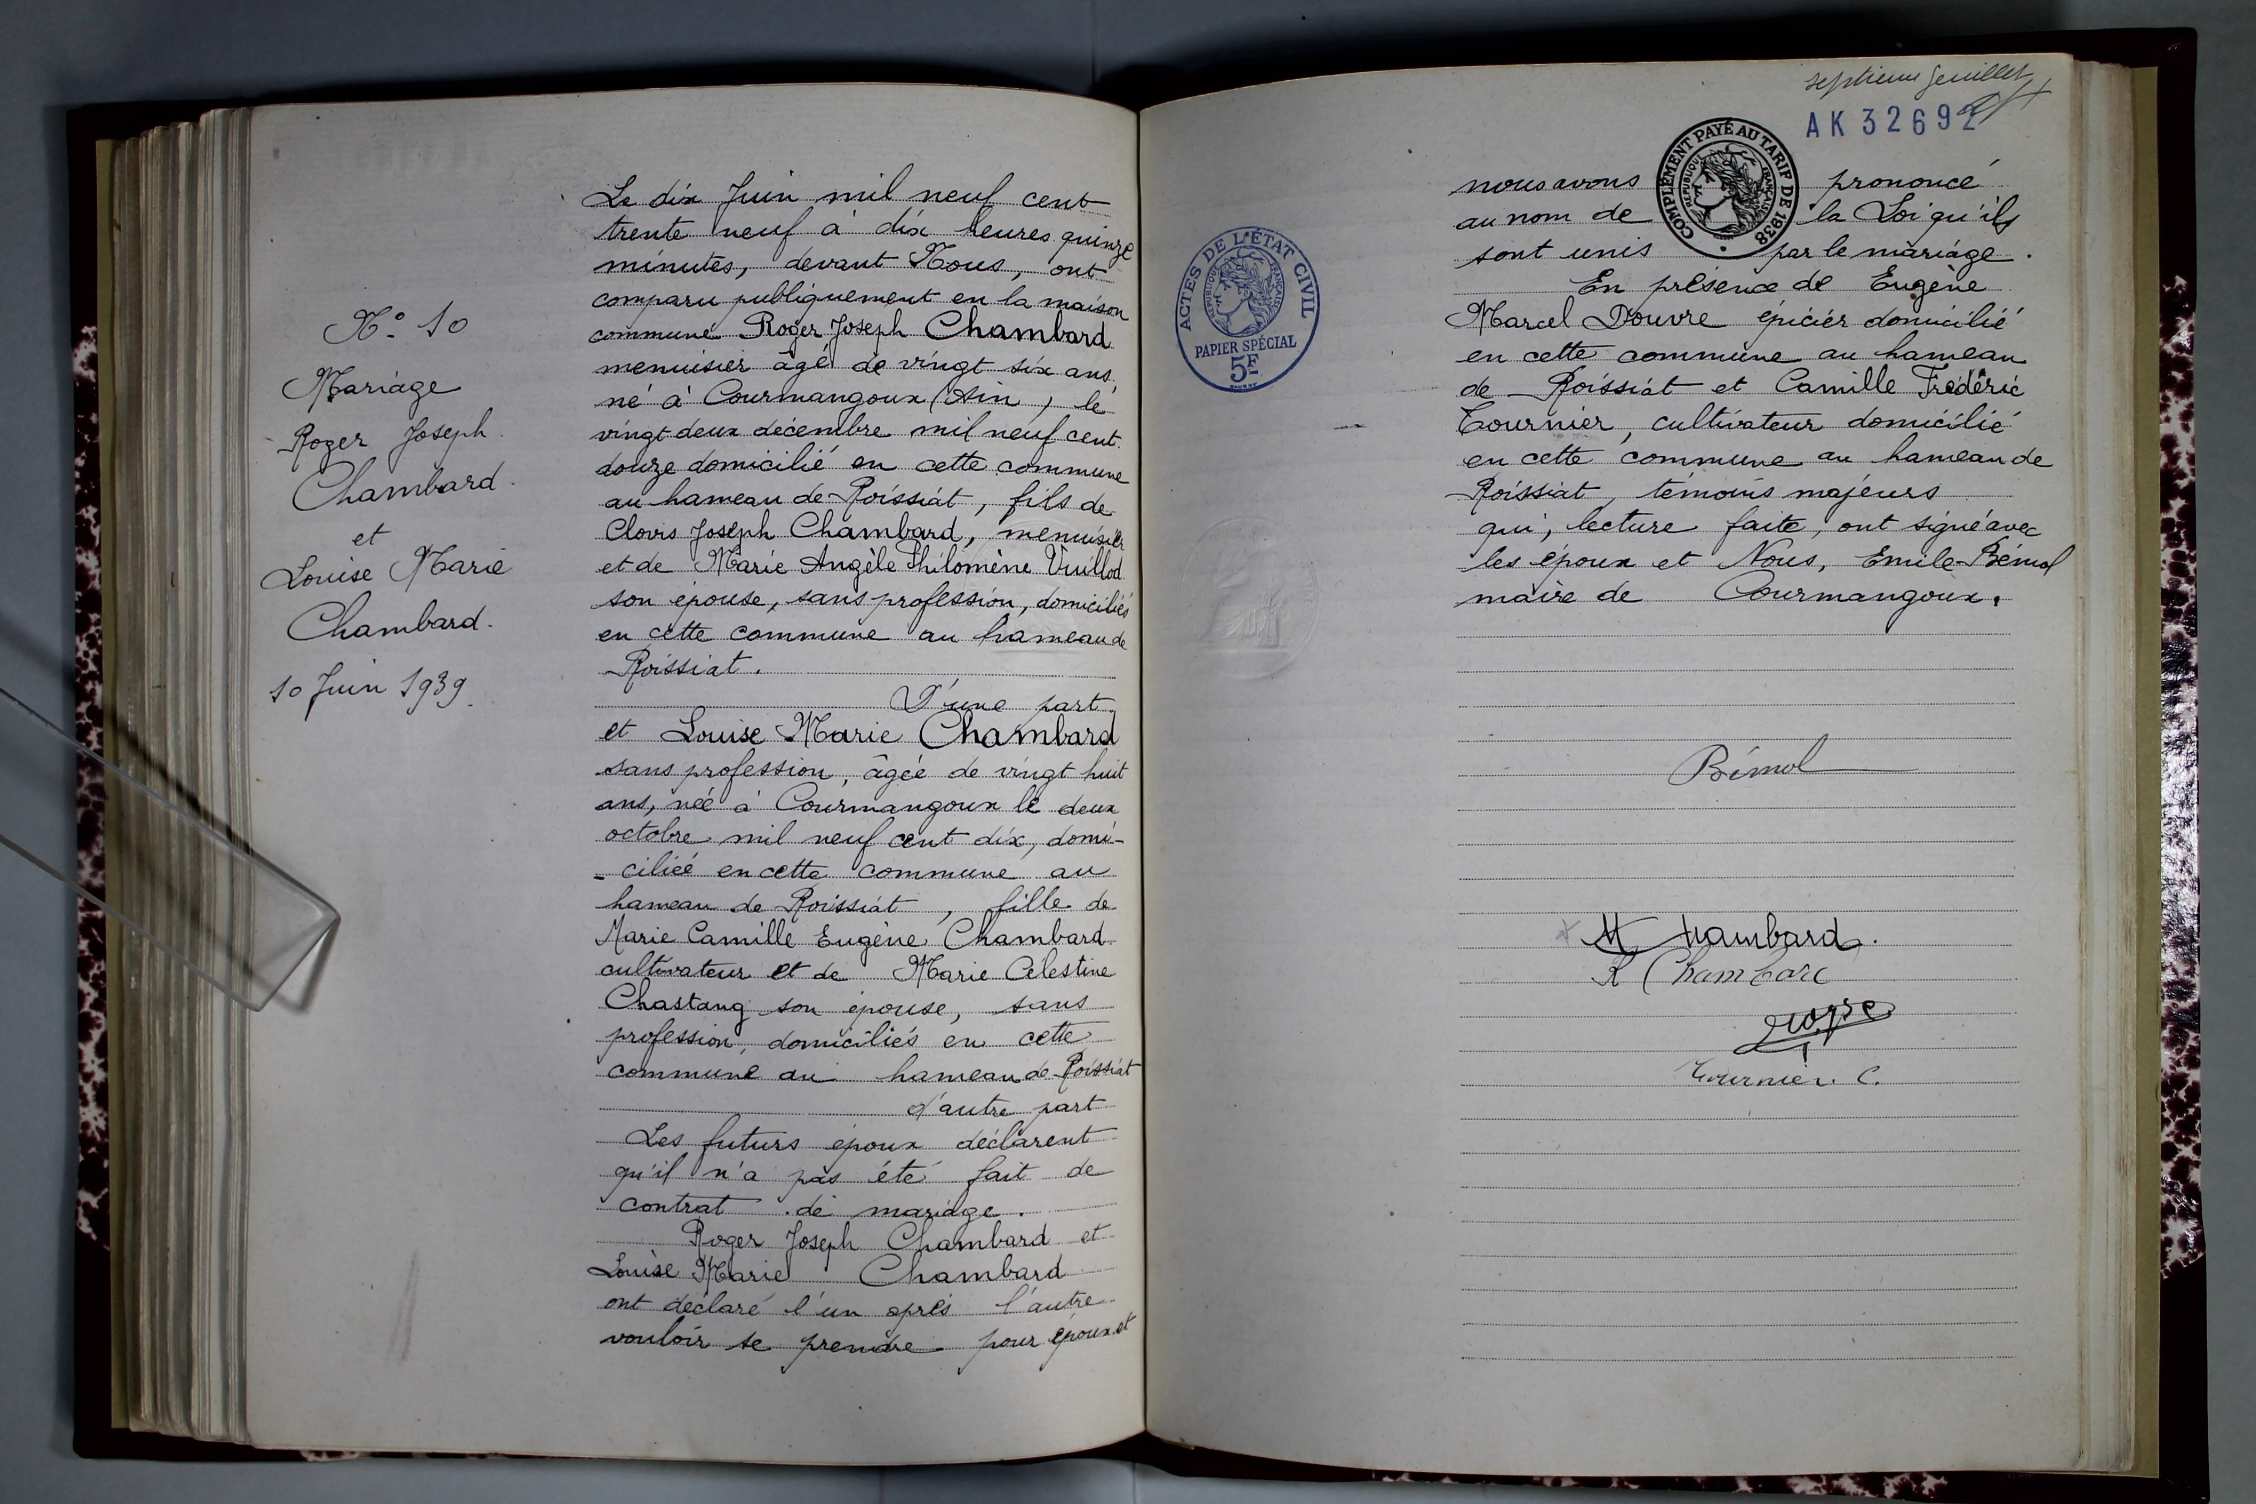 N° 10
Mariage
Roger Joseph
Chambard
et
Louise Marie
Chambard.
10 Juin 1939.
Le dix Juin mil neuf cent
trente neuf à dix heures quinze
minutes, devant Nous, ont
comparu publiquement en la maison
commune Roger Joseph Chambard
menuisier âgé de vingt six ans,
né à Courmangoux (Ain), le
vingt deux décembre mil neuf cent
douze domicilié en cette commune
au hameau de Roissiat, fils de
Clovis Joseph Chambard, menuisier
et de Marie Angèle Philomène Vuillod
son épouse, sans profession, domiciliés
en cette commune au hameau de
Roissiat.
D'une part
et Louise Marie Chambard
sans profession, âgée de vingt huit
ans, née à Courmangoux le deux
octobre mil neuf cent dix, domi-
- ciliée en cette commune au
hameau de Roissiat, fille de
Marie Camille Eugène Chambard
cultivateur et de Marie Célestine
Chastang son épouse, sans
profession, domiciliés en cette
commune au hameau de Roissiat
d'autre part
Les futurs époux déclarent
qu'il n'a pas été fait de
contrat de mariage.
Roger Joseph Chambard et
Louise Marie Chambard
ont déclaré l'un après l'autre
vouloir se prendre pour époux et
septième feuillet
AK 32692
COMPLÉMENT PAYÉ AU TARIF DE 1938
RÉPUBLIQUE FRANÇAISE
ACTES DE L'ÉTAT CIVIL
RÉPUBLIQUE FRANÇAISE
PAPIER SPÉCIAL
5F
nous avons prononcé
au nom de la Loi qu'ils
sont unis par le mariage.
En présence de Eugène
Marcel Douvre épicier domicilié
en cette commune au hameau
de Roissiat et Camille Frédéric
Tournier, cultivateur domicilié
en cette commune au hameau de
Roissiat, témoins majeurs
qui, lecture faite, ont signé avec
les époux et Nous, Emile Bémol
maire de Courmangoux.
Bémol
M Chambard.
R Chambard
Tournier. C.